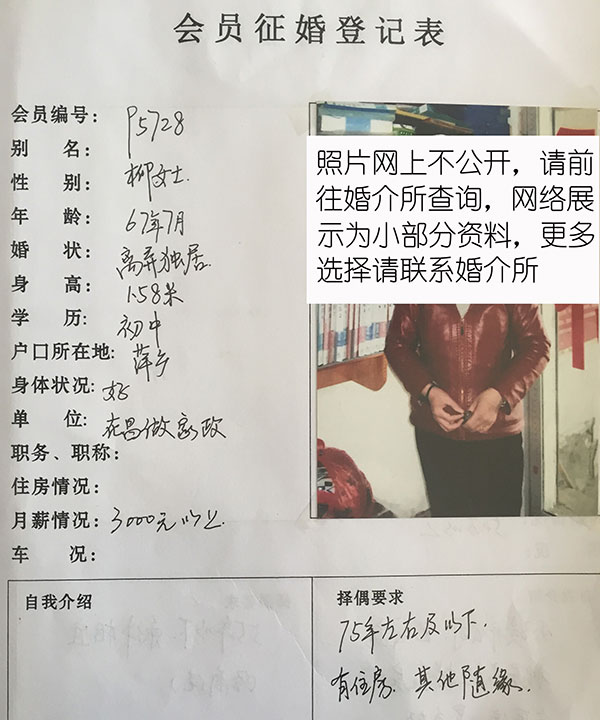 会员征婚登记表
会员编号: P5728
别 名:
性 别: 柳女士.
年 龄: 67年7月
婚 状: 离异独居.
身 高: 1.58米
学 历: 初中
户口所在地: 萍乡
身体状况: 好
单 位: 在昌做家政
职务、职称:
住房情况:
月薪情况: 3000元以上.
车 况:
照片网上不公开，请前
往婚介所查询，网络展
示为小部分资料，更多
选择请联系婚介所
自我介绍
择偶要求
75年左右及以下.
有住房. 其他随缘.